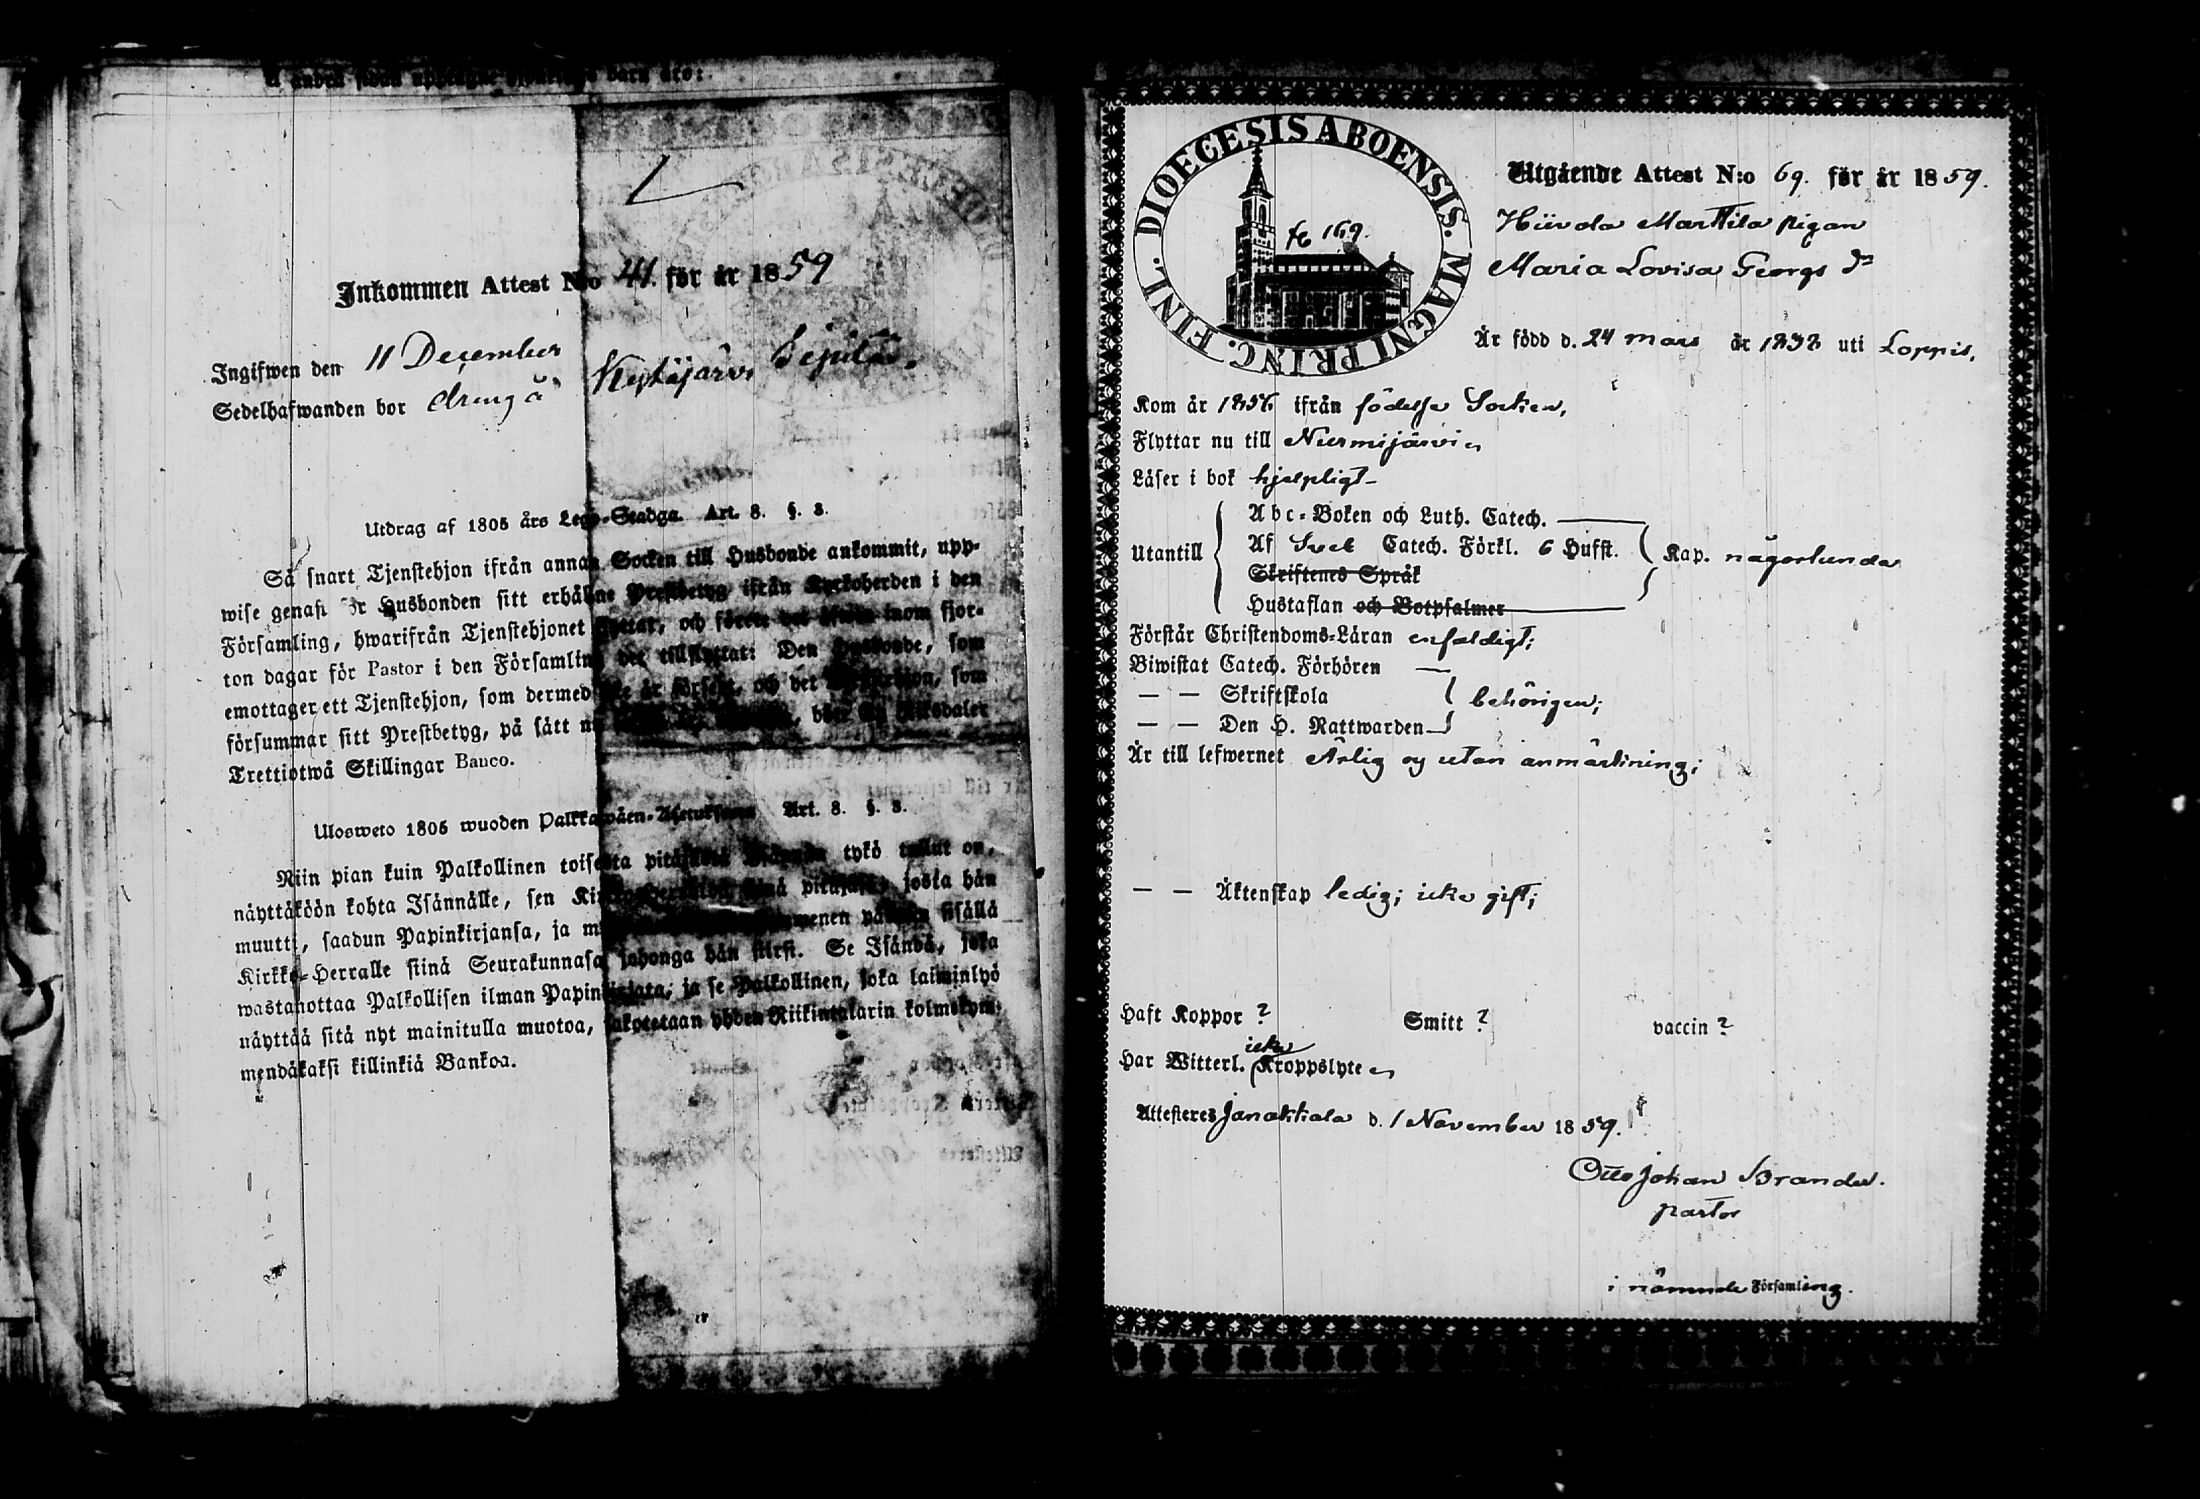 Inkommen Attest N:o 41. för år 1859
Ingifwen den 11 December
Sedelhafwanden bor dreng å Kytäjärvi Seputa.
Utdrag af 1805 års Lego-Stadga. Art. 8. §. 3.
Så snart Tjenstehjon ifrån annan Socken till Husbonde ankommit, upp-
wise genast för Husbonden sitt erhållne Prestbetyg ifrån Kyrkoherden i den
Församling, hwarifrån Tjenstehjonet flyttat, och förete det äfwen inom fjor-
ton dagar för Pastor i den Församling det tillflyttat: Den Husbonde, som
emottager ett Tjenstehjon, som dermed icke är försedt, och det Tjenstehjon, som
försummar sitt Prestbetyg, på sätt
Trettiotwå Skillingar Banco.
Ulosweto 1805 wuoden Palkkawäen-Asetuksesta Art. 8. §. 3.
Niin pian kuin Palkollinen toisesta pitäjästä Isännän tykö tullut on,
näyttäköön kohta Isännälle, sen pitäjästä, josta hän
muutti, saadun Papinkirjansa, ja sisällä
Kirkko-Herralle siinä Seurakunnasa, johonga hän siirsi. Se Isändä, joka
wastanottaa Palkollisen ilman Papinkirjata, ja se Palkollinen, joka laiminlyö
näyttää sitä nyt mainitulla muotoa, sakotetaan yhden Riikintalarin kolmekym-
mendäkaksi killinkiä Bankoa.
DIOECESIS ABOENSIS. MAGNI PRINC. FINL.
fc 169.
Utgående Attest N:o 69. för år 1859.
Hiivola Marttila pigan
Maria Lovisa Georgs dr
Är född d. 24 mars år 1838 uti Loppis,
Kom år 1856 ifrån födelse Socken,
Flyttar nu till Nurmijärvi
Läser i bok hjelpligt
Utantill
Abc-Boken och Luth. Catech.
Af Sveb Catech. Förkl. 6 Hufst. Kap. någorlunda
Skriftenes Språk
Hustaflan och Botpsalmer
Förstår Christendoms-Läran enfaldigt;
Biwistat Catech. Förhören
— — Skriftskola behörigen;
— — Den H. Nattwarden
Är till lefwernet Ärlig og utan anmärkning;
— — Äktenskap ledig; icke gift;
Haft Koppor ? Smitt ? vaccin ?
Har Witterl. icke Kroppslyte
Attesteres Janakkala d. 1 November 1859.
Otto Johan Brander.
pastor
i nämnde Församling.